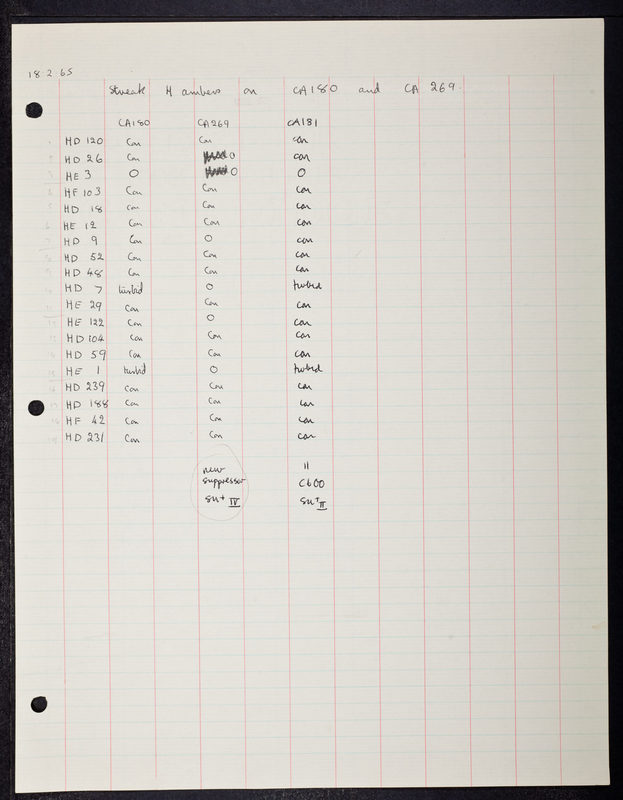 18.2.65
Streak H ambers on CA180 and CA 269.
CA180 CA269 CA181
HD 120 Con Con con
HD 26 Con O con
HE 3 O O O
HF 103 Con Con con
HD 18 Con Con con
HE 12 Con Con con
HD 9 Con O con
HD 52 Con Con con
HD 48 Con Con con
HD 7 turbid O turbid
HE 29 Con Con con
HE 122 Con O con
HD 104 Con Con con
HD 59 Con Con con
HE 1 turbid O turbid
HD 239 Con Con con
HD 188 Con Con con
HF 42 Con Con con
HD 231 Con Con con
new 11
suppressor C600
su+ IV su+ II